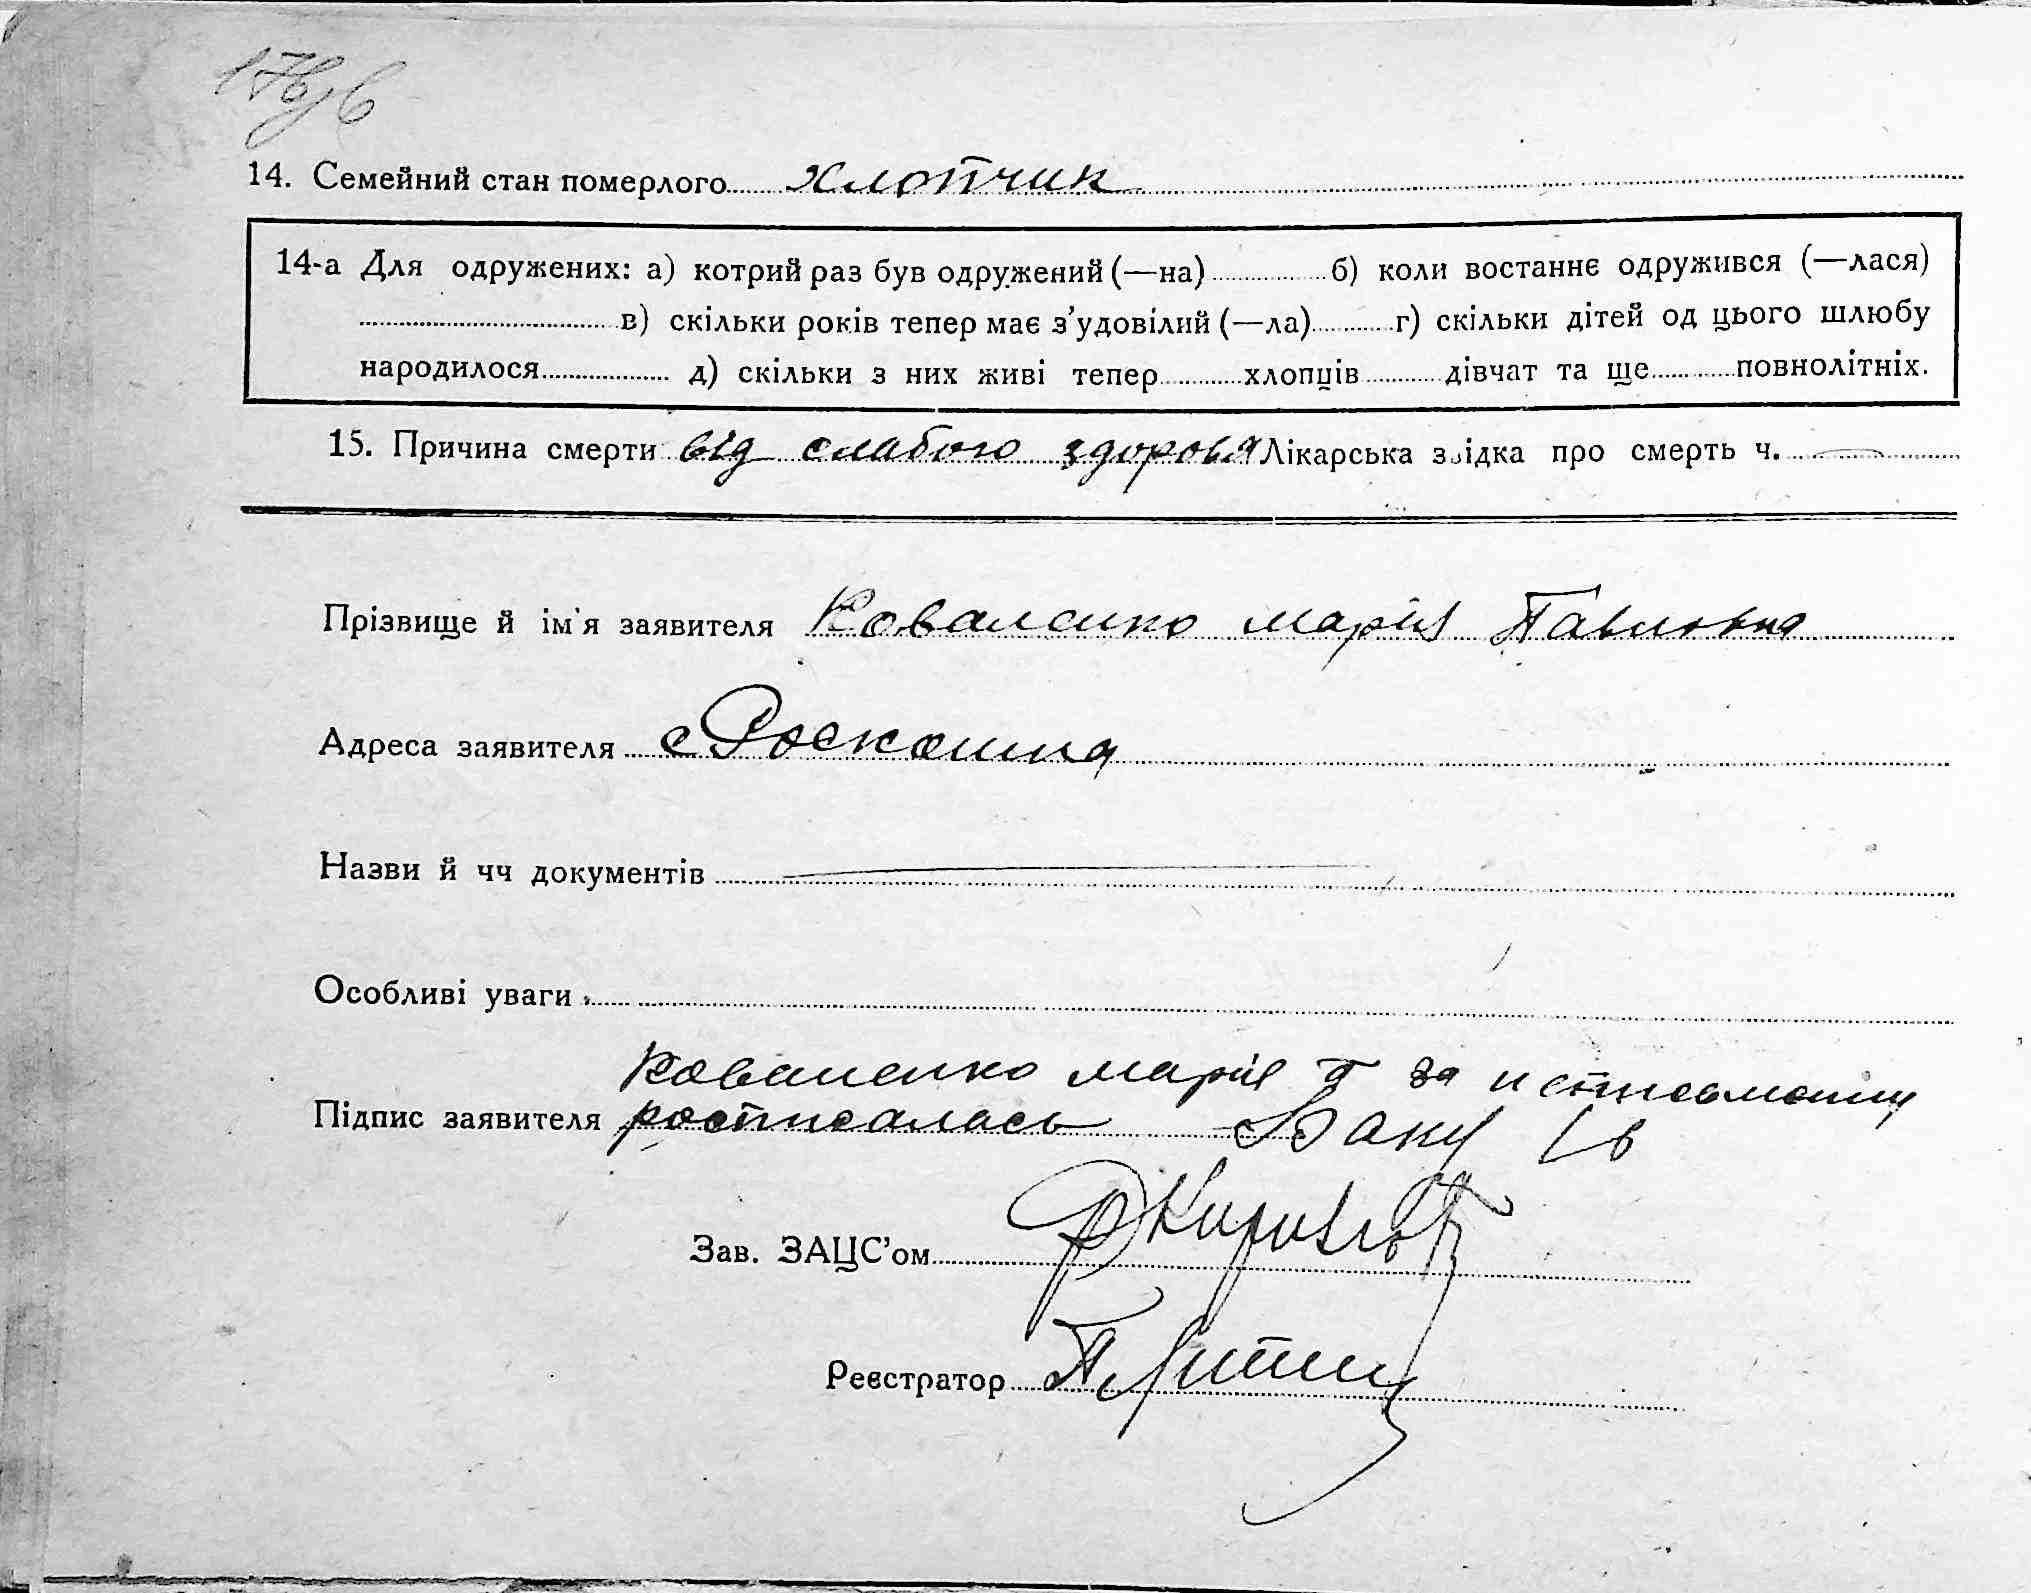 14. Семейний стан померлого хлопчик
14-а Для одружених: а) котрий раз був одружений (—на) б) коли востаннє одружився (—лася)
в) скільки років тепер має з'удовілий (—ла) г) скільки дітей од цього шлюбу
народилося д) скільки з них живі тепер хлопців дівчат та ще повнолітніх.
15. Причина смерти від слабого здоровя Лікарська звідка про смерть ч. —
Прізвище й ім'я заявителя Коваленко Марія Павловна
Адреса заявителя с Роскошна
Назви й чч документів —
Особливі уваги
Коваленко марія П за
Підпис заявителя росписалась
Зав. ЗАЦС'ом
Реєстратор